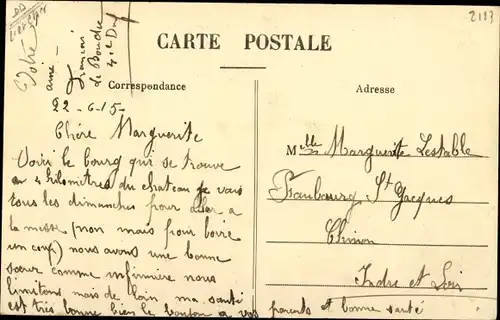 2183
Votre
ami
François
de Bouche
CARTE POSTALE
Correspondance
Adresse
22-6-15-
Chère Marguerite
Voici le bourg qui se trouve
a 4 kilomètres du chateau je vais
tous les dimanches pour aller a
la messe (non mais pour boire
un coup) nous avons une bonne
sœur comme infirmière nous
limitons mais de loin ma santé
est très bonne bien le bonjour a vos parents et bonne santé
Melle Marguerite Lestable
Faubourg St Jacques
Chinon
Indre et Loir